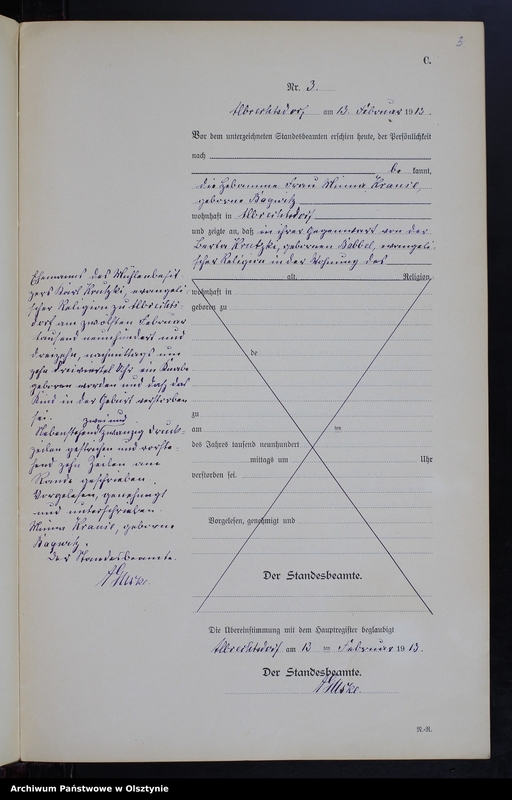 3
C.
Nr. 3.
Albrechtsdorf am 13. Februar 1913.
Vor dem unterzeichneten Standesbeamten erschien heute, der Persönlichkeit
nach
be kannt,
die Hebamme Frau Minna Kranis,
geborne Bagwitz
wohnhaft in Albrechtsdorf
und zeigte an, daß in ihrer Gegenwart von der
Berta Krutzki, gebornen Babbel, evangeli
scher Religion in der Wohnung des
alt, Religion,
Ehemanns des Mühlenbesit
zers Karl Krutzki, evangeli
scher Religion zu Albrechts
dorf am zwölften Februar
tausend neunhundert und
dreizehn, nachmittags um
zehn dreiviertel Uhr ein Knabe
geboren worden und daß das
Kind in der Geburt verstorben
sei.
zwei und
Nebenstehend zwanzig Druck-
zeilen gestrichen und vorste-
hend zehn Zeilen am
Rande geschrieben.
Vorgelesen, genehmigt
und unterschrieben
Minna Kranis, geborne
Bagwitz.
Der Standesbeamte.
wohnhaft in
geboren zu
de
zu
am ten
des Jahres tausend neunhundert
mittags um Uhr
verstorben sei.
Vorgelesen, genehmigt und
Der Standesbeamte.
Die Übereinstimmung mit dem Hauptregister beglaubigt
Albrechtsdorf am 13 ten Februar 1913.
Der Standesbeamte.
N.-R.
Archiwum Państwowe w Olsztynie